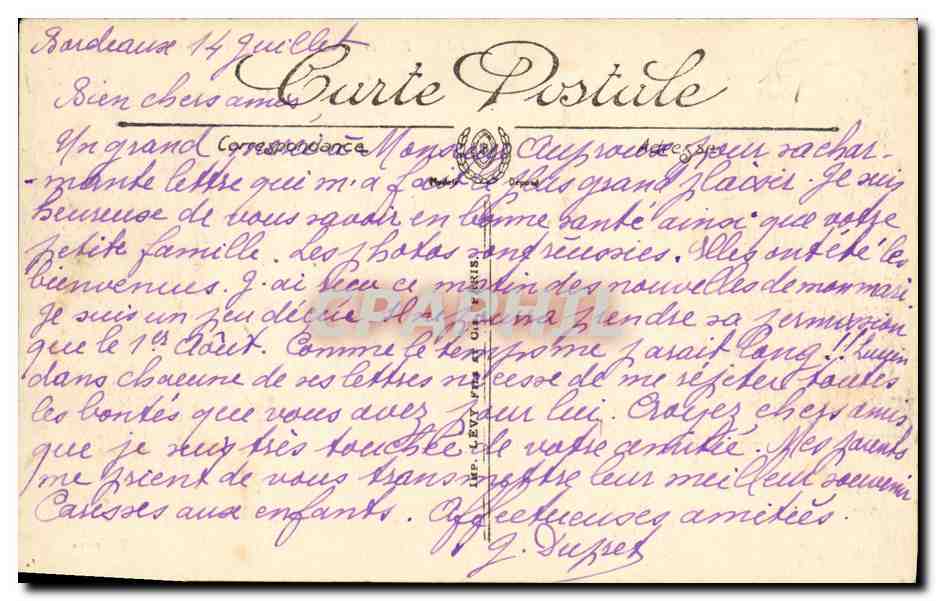 Bordeaux 14 Juillet
Carte Postale
Bien chers amis
Correspondance Adresse
Un grand merci à Monsieur pour sa char-
Modèle Déposé
-mante lettre qui m'a fait le plus grand plaisir. Je suis
heureuse de vous savoir en bonne santé ainsi que votre
petite famille. Les photos sont réussies. Elles ont été les
bienvenues. J'ai reçu ce matin des nouvelles de mon mari
CPAPHIL
je suis un peu déçue il ne pourra prendre sa permission
que le 1er Août. Comme le temps me parait long!! Lucien
dans chacune de ses lettres ne cesse de me répéter toutes
les bontés que vous avez pour lui. Croyez chers amis
que je suis très touchée de votre amitié. Mes parents
me prient de vous transmettre leur meilleur souvenir
Caresses aux enfants. Affectueuses amitiés.
J. Dupret
IMP. LÉVY FILS ET CIE PARIS